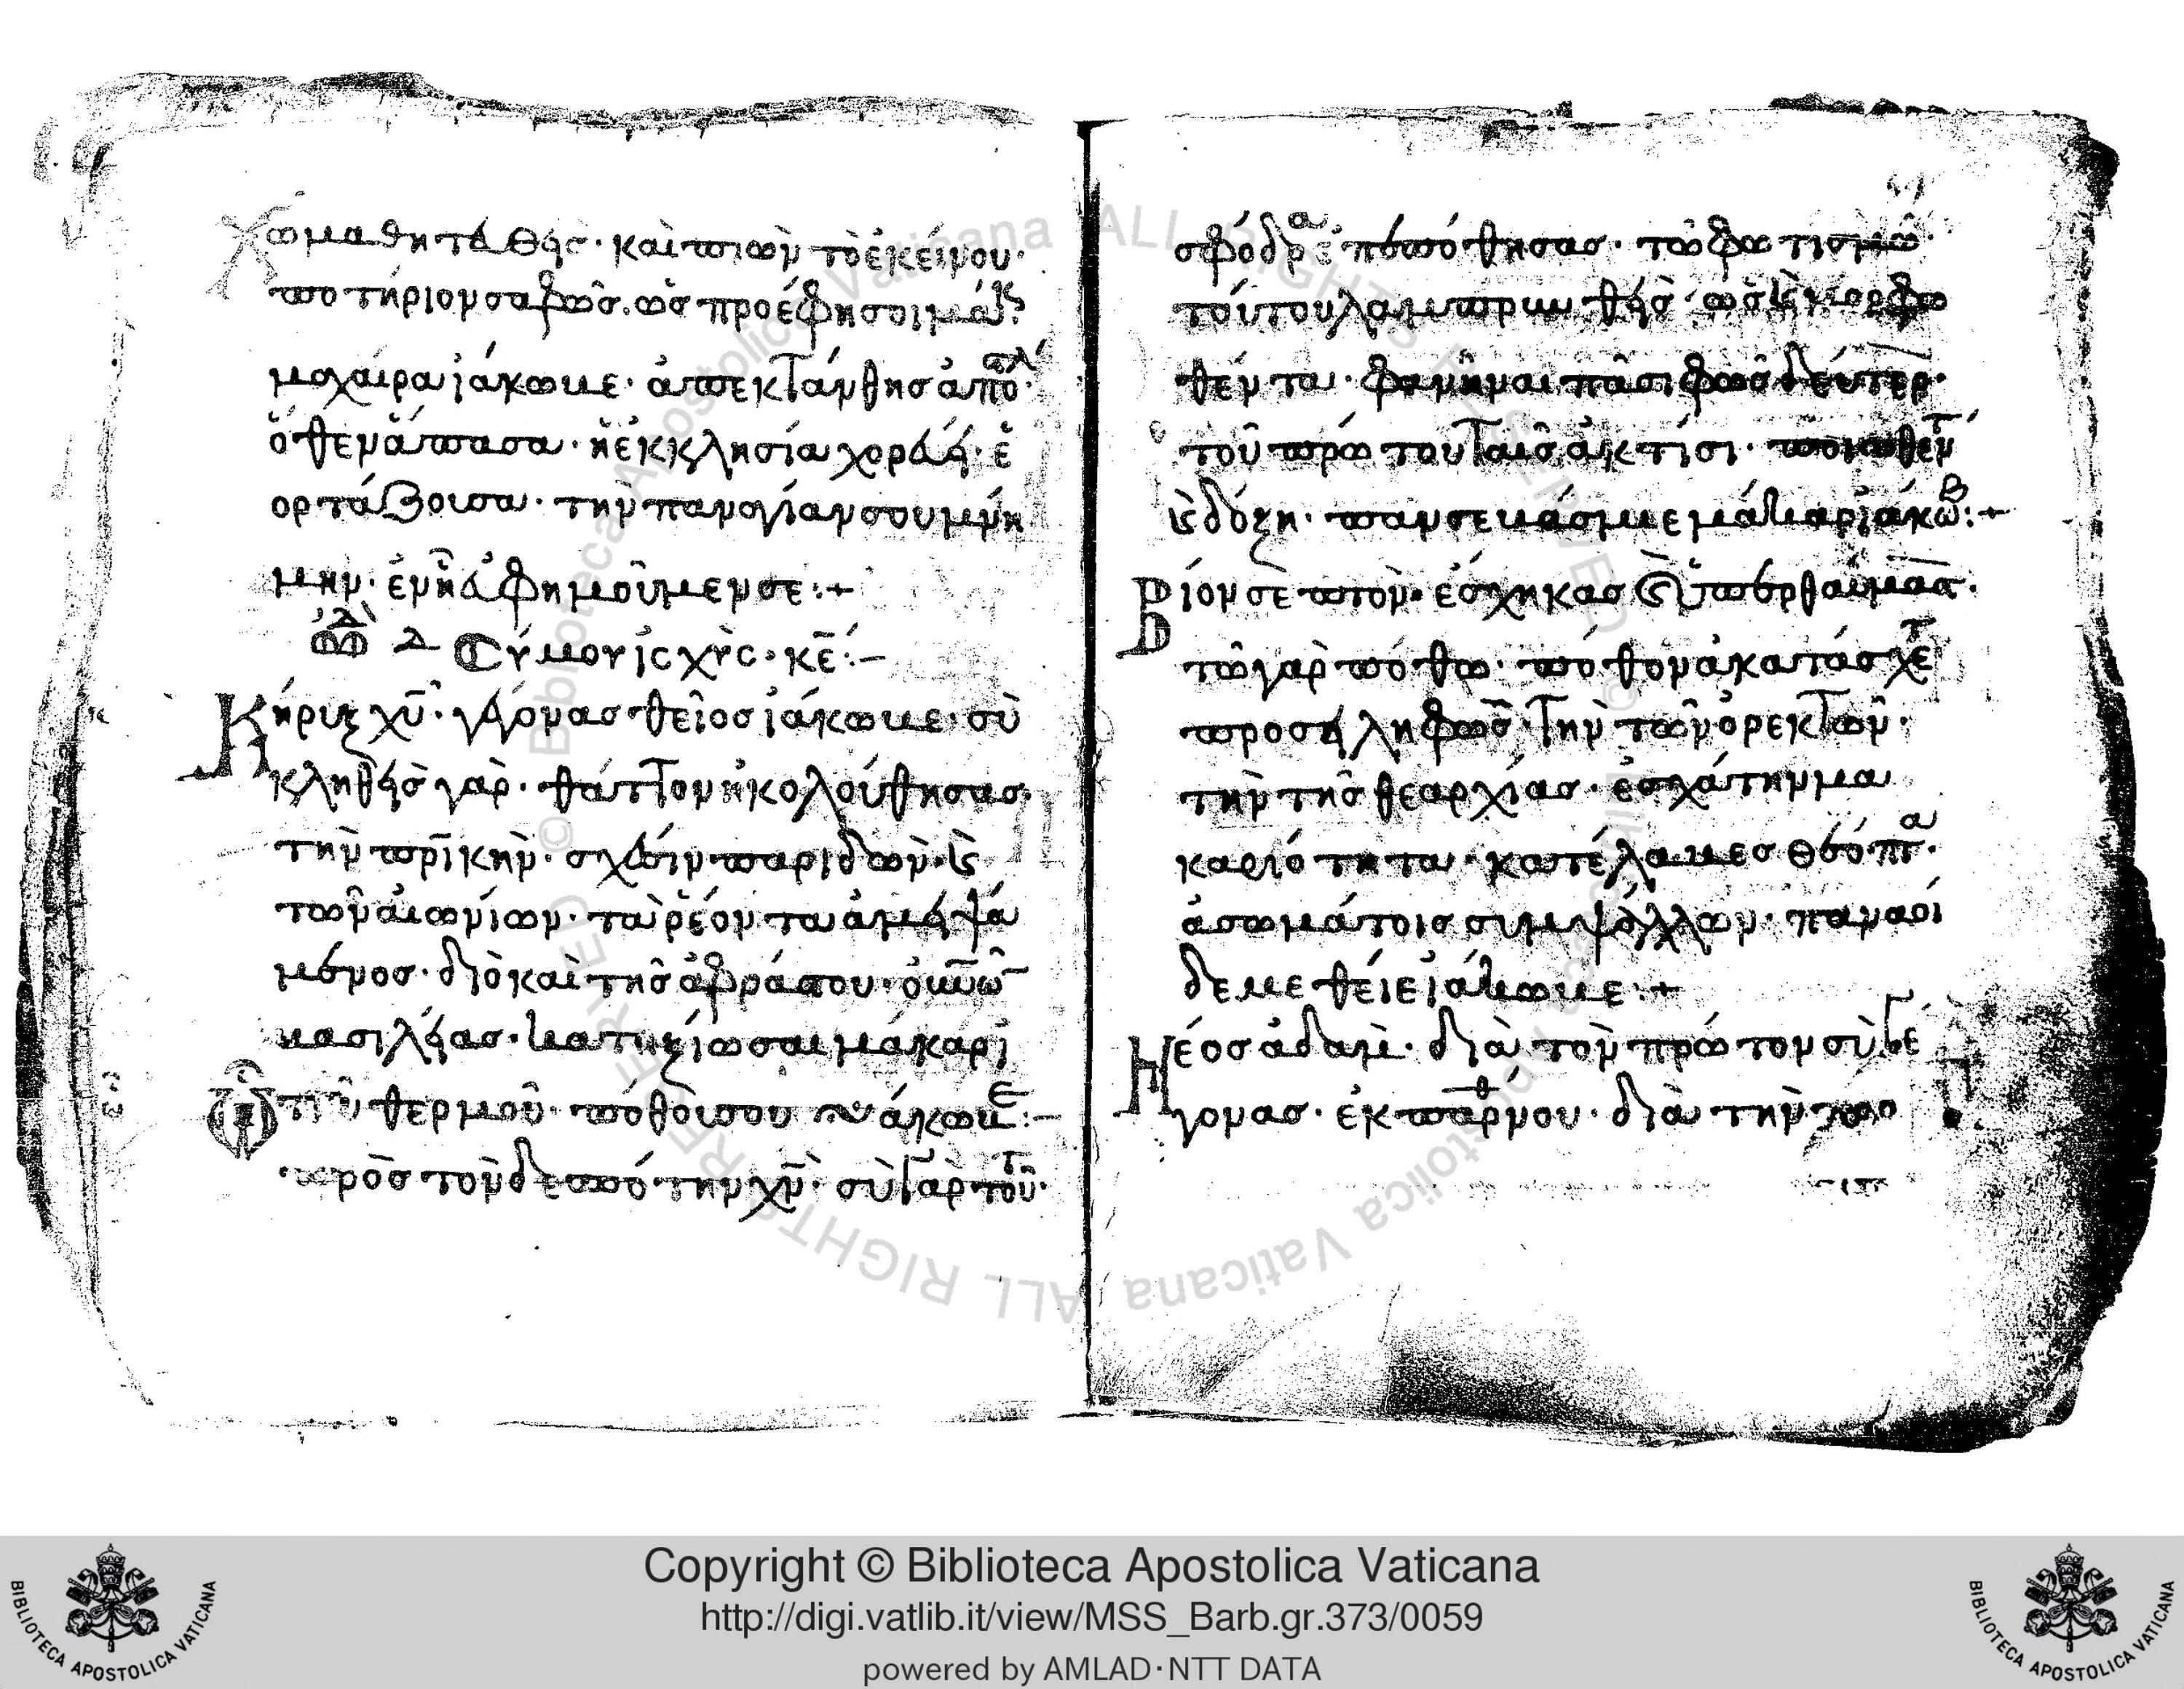 ω μαθητὰ θεῖος· καὶ πιὼν τὸ ἐκείνου·
ποτήριον σαφῶς· ὡς προέφησοι
μαχαίρα ἰάκωβε· ἀπεκτάνθησ ἀπό·
ὅθεν ἅπασα· ἡ ἐκκλησία χορεύει· ἑ
ορτάζουσα· τὴν παναγίαν σου μνή
μην· ἐν ἧ εὐφημοῦμεν σε:+
Σύ μου ἰσχὺς· κε̅:–
Κήρυξ χυ̅· γέγονας θεῖος ἰάκωβε· σὺ
κληθεὶς γὰρ· θάττον ἠκολούθησας·
τὴν πρι̅κὴν· σχέσιν παριδὼν· καὶ
τῶν αἰωνίων· τὰ ῥέοντα ἀμειψά
μενος· διὸ καὶ τῆς ἀφράστου·
βασιλείας· κατηξίωσαι μάκαρ
θερμοῦ· πόθου σου ἰάκωβε:–
πρὸς τὸν δεσπότην χν̅· σὺ γὰρ τοῦτ·
σφόδρα ἐπιποθήσας· τῶ φωτισμῶ·
τούτου λαμπρυνθεὶς· ὡς καὶ μορφω
θέντα· φανῆναι πᾶσι φῶς δεύτερ·
τοῦ πρώτου ταῖς ἀκτίσι·
καὶ δόξη· πανσεβάσμιε μάκαρ ἰάκωβ:+
Βίον σεπτὸν· ἔσχηκας ὑπερθαύμαστ·
τῶ γὰρ πόθω· πόθον ἀκατάσχετ
προσειληφὼς· τὴν τῶν ὀρεκτῶν·
τὴν τῆς θεαρχίας· ἐσχάτην μα
καριότητα· κατέλαβες θεόπτα·
ἀσωμάτοις συμψάλλων· παναοί
διμε θείε ἰάκωβε:+
Νέος ἀδὰμ· διὰ τὸν πρῶτον σὺ γέ
γονας· ἐκ παρθένου· διὰ τὴν
Copyright © Biblioteca Apostolica Vaticana
http://digi.vatlib.it/view/MSS_Barb.gr.373/0059
powered by AMLAD·NTT DATA
BIBLIOTECA APOSTOLICA VATICANA
BIBLIOTECA APOSTOLICA VATICANA